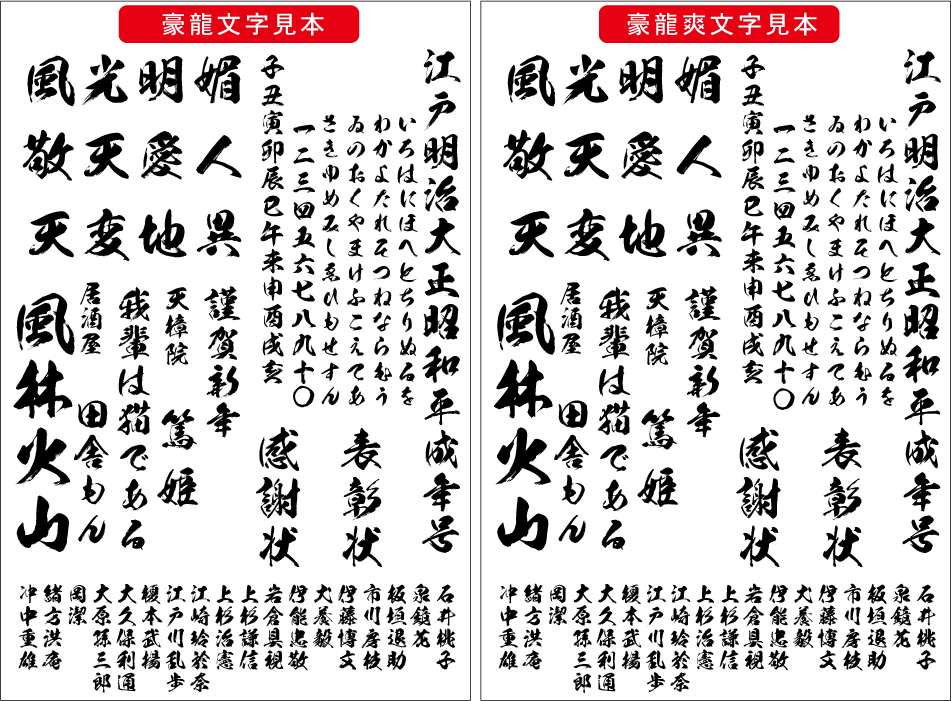 豪龍文字見本
江戸明治大正昭和平成年号
いろはにほへとちりぬるを
わかよたれそつねならむう
ゐのおくやまけふこえてあ
さきゆめみしゑひもせすん
一二三四五六七八九十〇
子丑寅卯辰巳午未申酉戌亥
表彰状
感謝状
風光明媚
敬天愛人
天変地異
謹賀新年
天樟院 篤姫
我輩は猫である
居酒屋 田舎もん
風林火山
石井桃子
泉鏡花
板垣退助
市川房枝
伊藤博文
犬養毅
伊能忠敬
岩倉具視
上杉謙信
上杉治憲
江崎玲於奈
江戸川乱歩
榎本武揚
大久保利通
大原孫三郎
岡潔
緒方洪庵
冲中重雄
豪龍爽文字見本
江戸明治大正昭和平成年号
いろはにほへとちりぬるを
わかよたれそつねならむう
ゐのおくやまけふこえてあ
さきゆめみしゑひもせすん
一二三四五六七八九十〇
子丑寅卯辰巳午未申酉戌亥
表彰状
感謝状
風光明媚
敬天愛人
天変地異
謹賀新年
天樟院 篤姫
我輩は猫である
居酒屋 田舎もん
風林火山
石井桃子
泉鏡花
板垣退助
市川房枝
伊藤博文
犬養毅
伊能忠敬
岩倉具視
上杉謙信
上杉治憲
江崎玲於奈
江戸川乱歩
榎本武揚
大久保利通
大原孫三郎
岡潔
緒方洪庵
冲中重雄